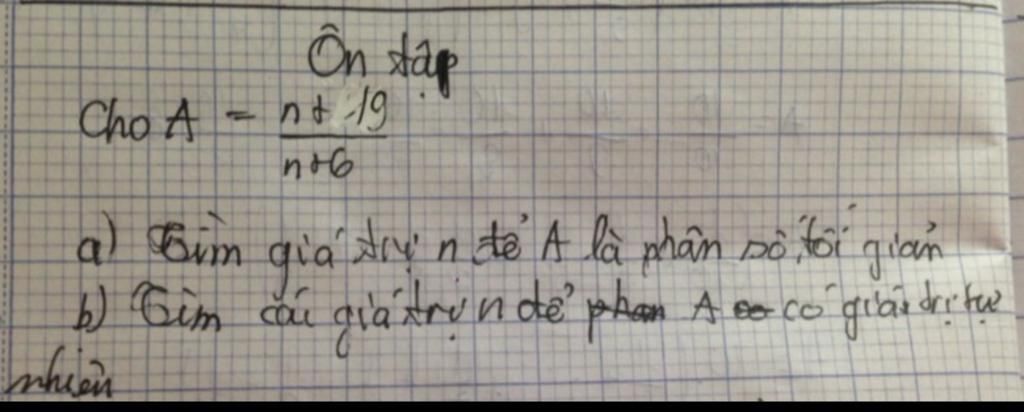 Ôn tập
Cho A = n+ 19
n+6
a) Tìm giá trị n để A là phân số tối giản
b) Tìm các giá trị n để phan A có giá trị tự
nhiên